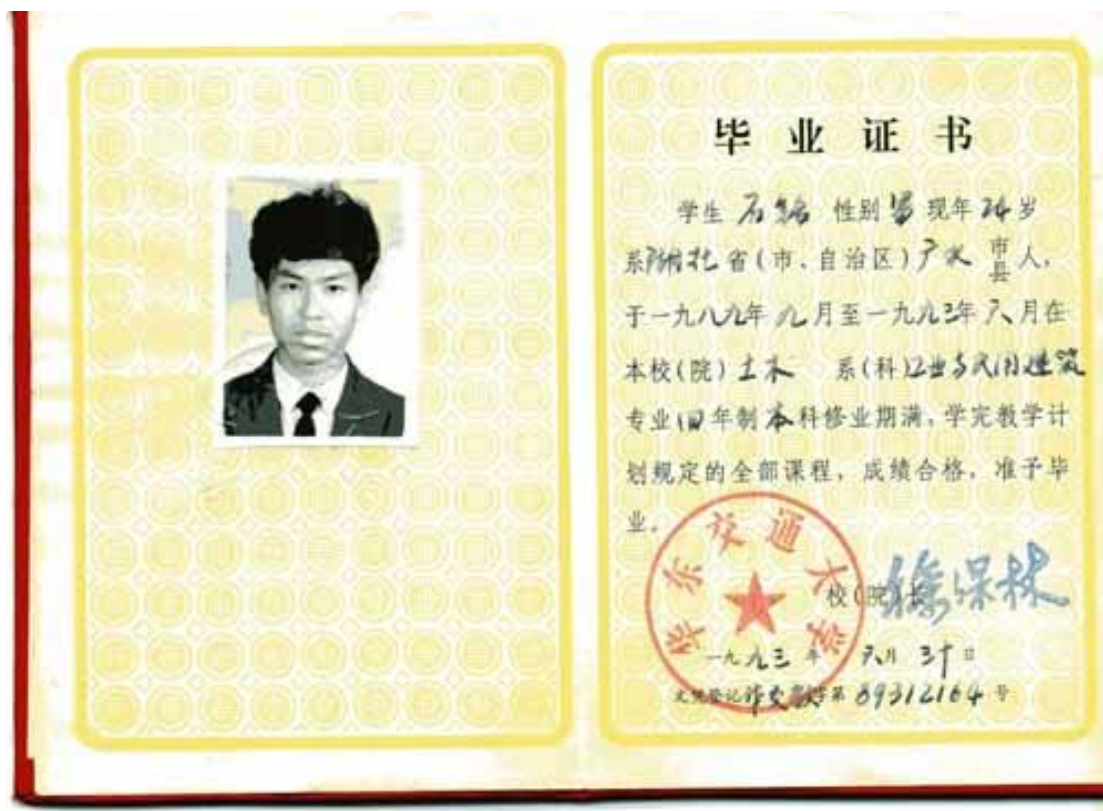 毕业证书
学生 石 性别 男 现年 24 岁
系 湖北 省(市、自治区) 广水 市县 人,
于一九八九年 九 月至一九九三年 六 月在
本校(院) 土木 系(科) 工业与民用建筑
专业 四 年制 本 科修业期满,学完教学计
划规定的全部课程,成绩合格,准予毕
业。
华东交通大学
校(院)长 保林
一九九三 年 六月 三十 日
文凭登记 字第 89312164 号